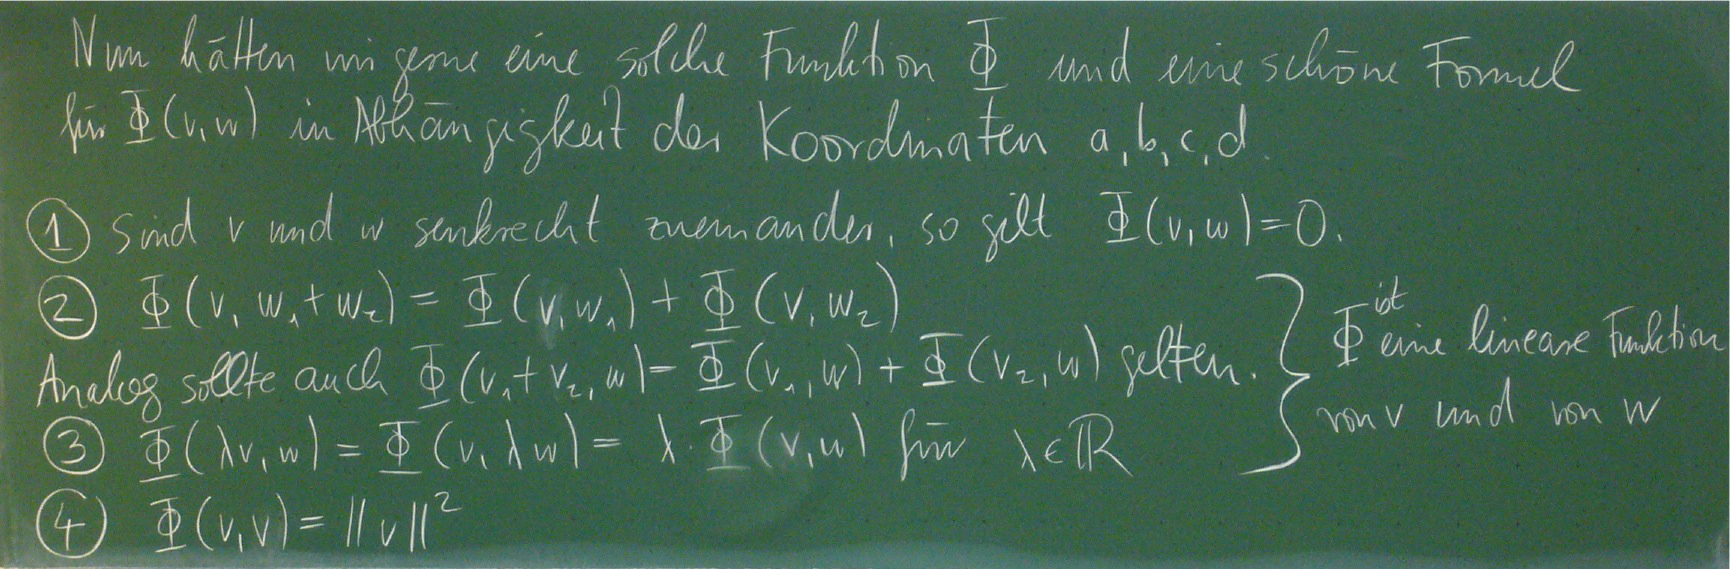 Nun hätten wir gerne eine solche Funktion Φ und eine schöne Formel
für Φ(v,w) in Abhängigkeit der Koordinaten a,b,c,d.
① Sind v und w senkrecht zueinander, so gilt Φ(v,w)=0.
② Φ(v, w₁+w₂) = Φ(v,w₁) + Φ(v,w₂)
Analog sollte auch Φ(v₁+v₂,w)=Φ(v₁,w)+Φ(v₂,w) gelten.
③ Φ(λv,w) = Φ(v,λw) = λ·Φ(v,w) für λ∈ℝ
④ Φ(v,v) = ||v||²
Φ ist eine lineare Funktion
von v und von w